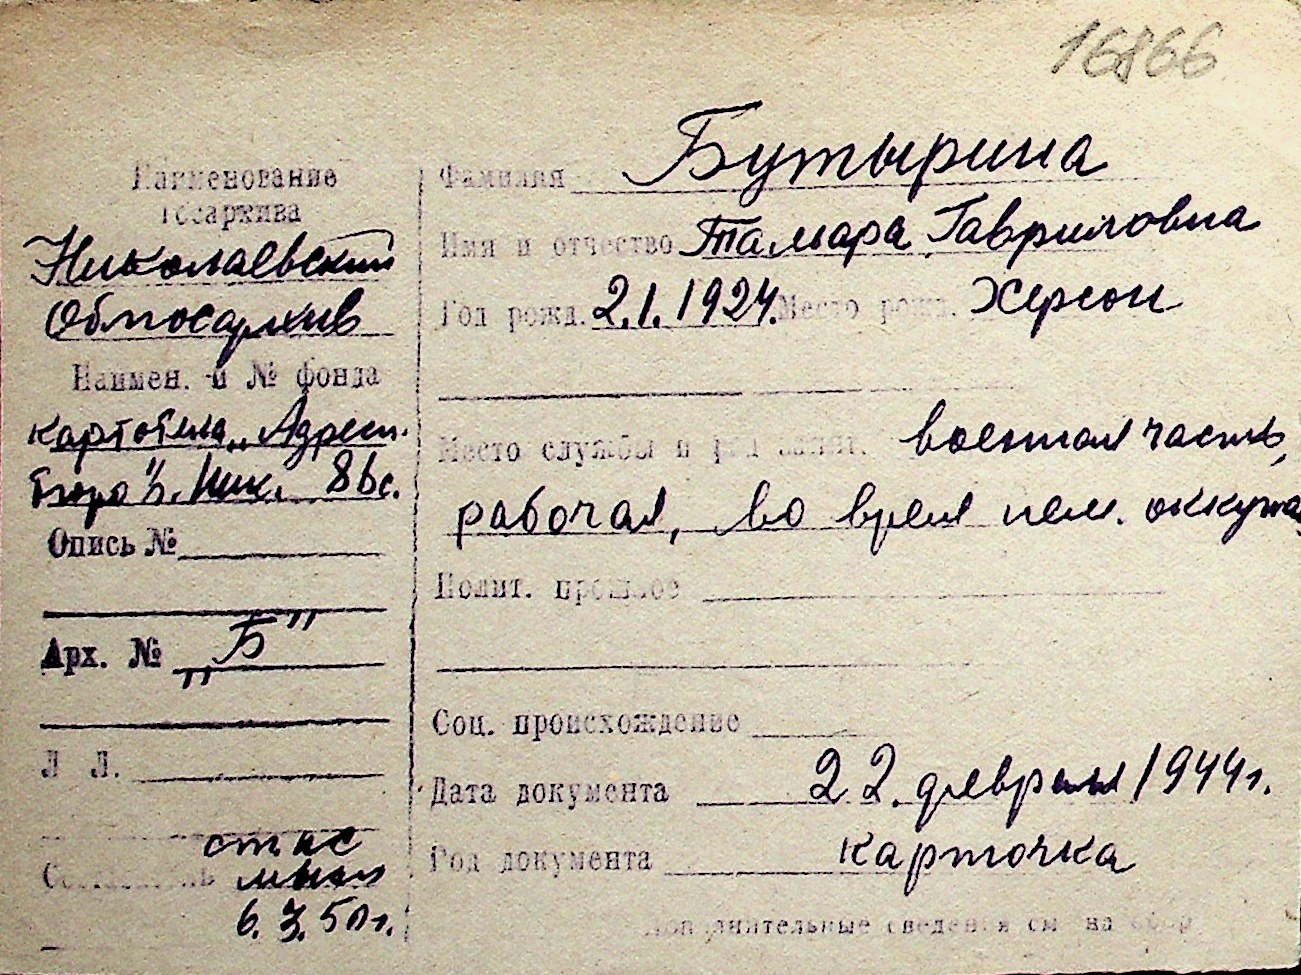 16866
Наименование
Госархива
Николаевский
Облгосархив
Наимен. и № фонда
картотека „Адресн.
бюро" г. Ник. 86с.
Опись №
Арх. № „Б"
Л Л.
Составитель
6. 3. 50 г.
Фамилия Бутырина
Имя и отчество Тамара Гавриловна
Год рожд. 2.1.1924. Место рожд. Херсон
Место службы и род занят. военная часть,
рабочая, во время нем. оккупа
Полит. прошлое
Соц. происхождение
Дата документа 22 февраля 1944 г.
Род документа карточка
Дополнительные сведения см на обор